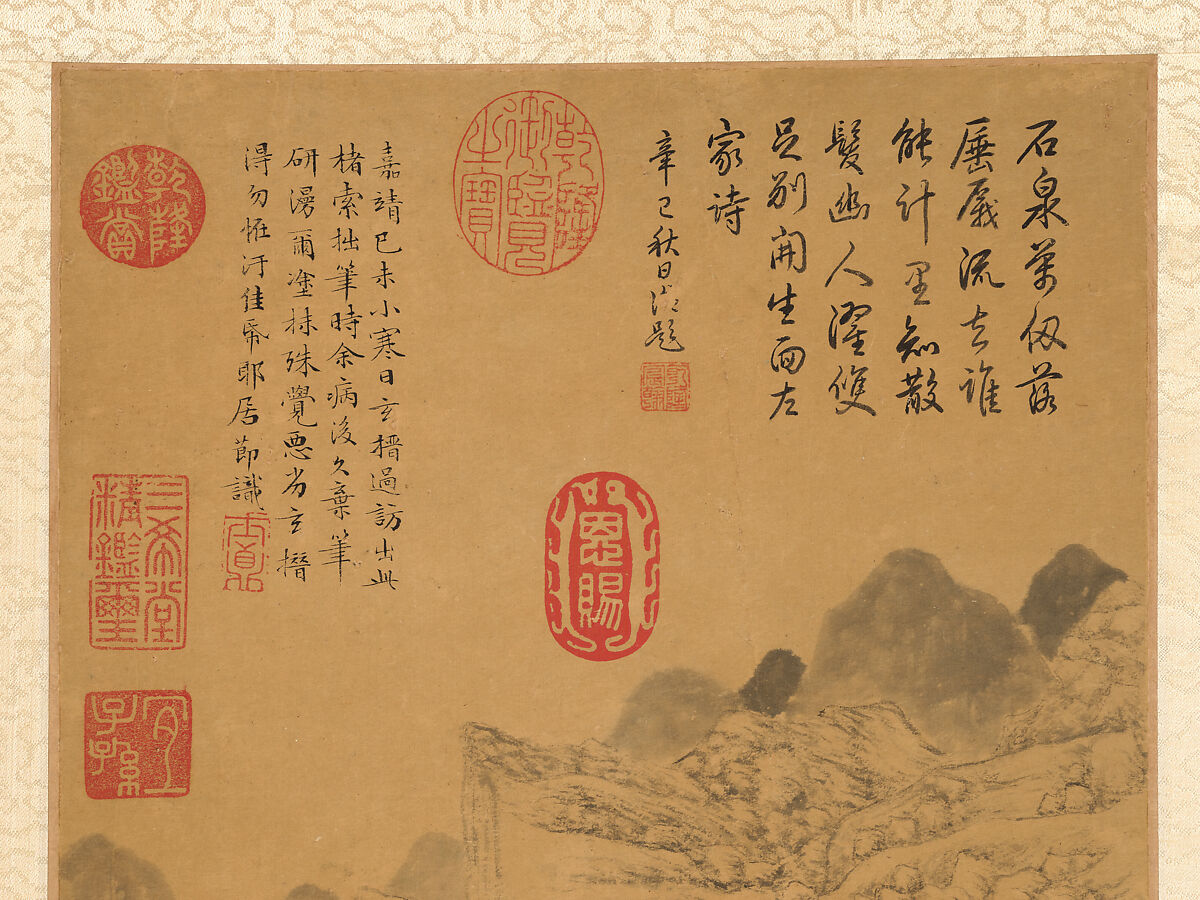 石泉萬仞落
厜㕒流去誰
能計里知散
髮幽人濯雙
足別開生面左
家詩
辛巳秋日御題
乾隆宸翰
乾隆御覽之寶
恩賜
嘉靖己未小寒日玄搢過訪出此
楮索拙筆時余病後久棄筆
研漫爾塗抹殊覺惡劣玄搢
得勿恠汙佳帋耶居節識
乾隆鑑賞
三希堂精鑑璽
宜子孫